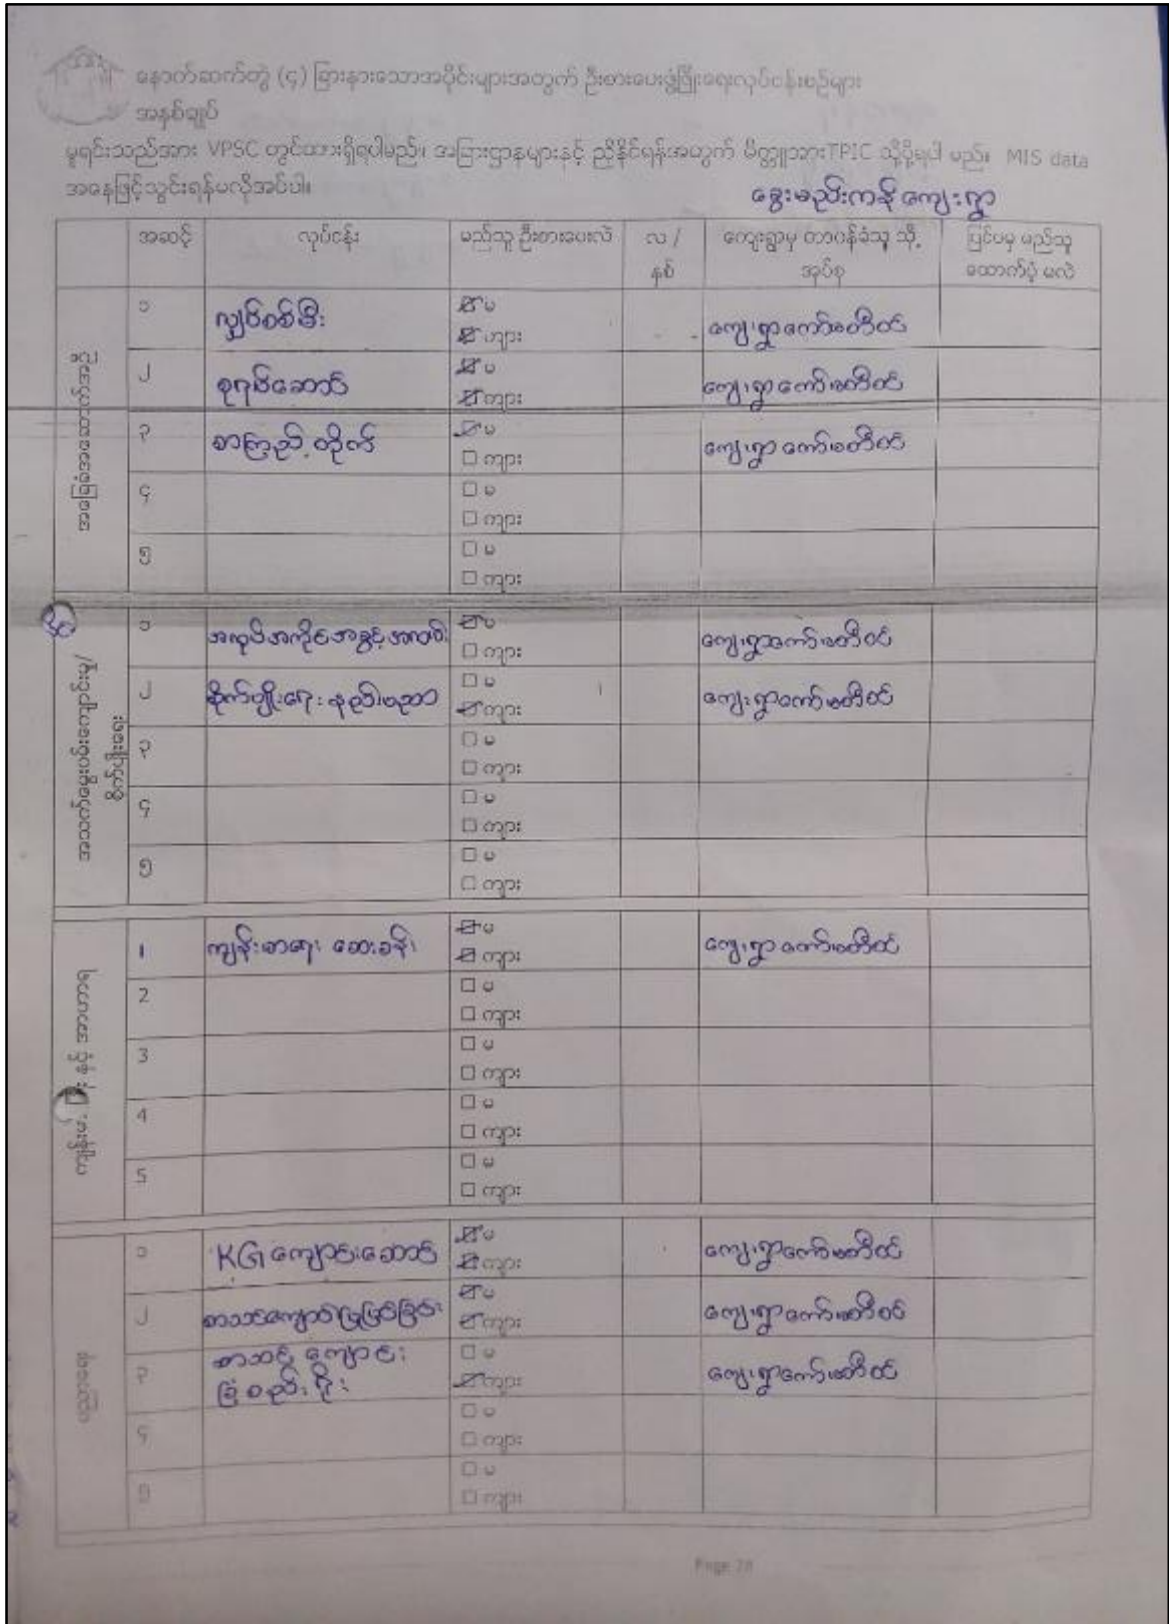 နောက်ဆက်တွဲ (၄) ခြားနားသောအပိုင်းများအတွက် ဦးစားပေးဖွံ့ဖြိုးရေးလုပ်ငန်းစဉ်များ
အနှစ်ချုပ်
မူရင်းသည်အား VPSC တွင်ထားရှိရပါမည်။ အခြားဌာနများနှင့် ညှိနှိုင်ရန်အတွက် မိတ္တူအားTPIC သို့ပို့ရပါ မည်။ MIS data
အနေဖြင့်သွင်းရန်မလိုအပ်ပါ။
ခွေးမည်းကန် ကျေးရွာ
အဆင့် လုပ်ငန်း မည်သူ ဦးစားပေးလဲ လ / နှစ် ကျေးရွာမှ တာဝန်ခံသူ သို့ အုပ်စု ပြင်ပမှ မည်သူ ထောက်ပံ့ မလဲ
အခြေခံအဆောက်အဦ
၁ လျှပ်စစ်မီး ☑ မ ☑ ကျား ကျေးရွာကော်မတီဝင်
၂ စုရပ်ဆောင် ☑ မ ☑ ကျား ကျေးရွာကော်မတီဝင်
၃ စာကြည့်တိုက် ☑ မ ☐ ကျား ကျေးရွာကော်မတီဝင်
၄ ☐ မ ☐ ကျား
၅ ☐ မ ☐ ကျား
၁ အလုပ်အကိုင်အခွင့်အလမ်း ☑ မ ☐ ကျား ကျေးရွာကော်မတီဝင်
၂ စိုက်ပျိုးရေးနည်းပညာ ☐ မ ☑ ကျား ကျေးရွာကော်မတီဝင်
၃ ☐ မ ☐ ကျား
၄ ☐ မ ☐ ကျား
၅ ☐ မ ☐ ကျား
1 ကျန်းမာရေး ဆေးခန်း ☑ မ ☑ ကျား ကျေးရွာကော်မတီဝင်
2 ☐ မ ☐ ကျား
3 ☐ မ ☐ ကျား
4 ☐ မ ☐ ကျား
5 ☐ မ ☐ ကျား
၁ KG ကျောင်းဆောင် ☑ မ ☑ ကျား ကျေးရွာကော်မတီဝင်
၂ စာသင်ကျောင်းပြုပြင်ခြင်း ☑ မ ☑ ကျား ကျေးရွာကော်မတီဝင်
၃ စာသင်ကျောင်း ခြံစည်းရိုး ☐ မ ☑ ကျား ကျေးရွာကော်မတီဝင်
၄ ☐ မ ☐ ကျား
၅ ☐ မ ☐ ကျား